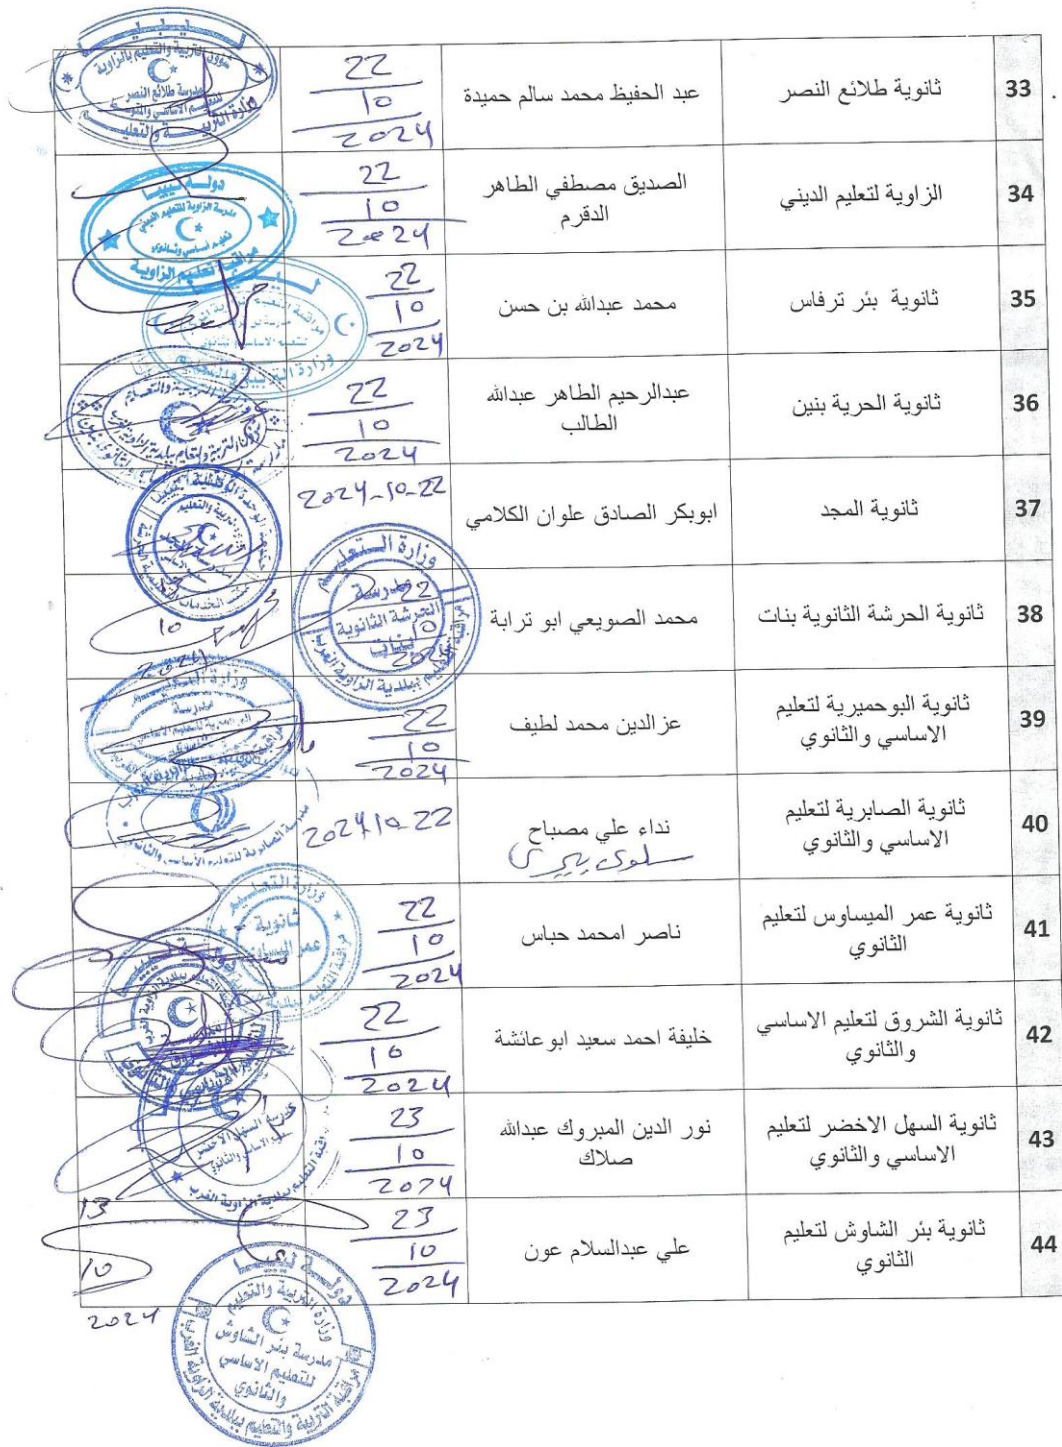 33
ثانوية طلائع النصر
عبد الحفيظ محمد سالم حميدة
22
10
2024
34
الزاوية لتعليم الديني
الصديق مصطفي الطاهر
الدقرم
22
10
2024
35
ثانوية بئر ترفاس
محمد عبدالله بن حسن
22
10
2024
36
ثانوية الحرية بنين
عبدالرحيم الطاهر عبدالله
الطالب
22
10
2024
37
ثانوية المجد
ابوبكر الصادق علوان الكلامي
2024-10-22
38
ثانوية الحرشة الثانوية بنات
محمد الصويعي ابو ترابة
22
10
39
ثانوية البوحميرية لتعليم
الاساسي والثانوي
عزالدين محمد لطيف
22
10
2024
40
ثانوية الصابرية لتعليم
الاساسي والثانوي
نداء علي مصباح
2024 10-22
41
ثانوية عمر الميساوس لتعليم
الثانوي
ناصر امحمد حباس
22
10
2024
42
ثانوية الشروق لتعليم الاساسي
والثانوي
خليفة احمد سعيد ابوعائشة
22
10
2024
43
ثانوية السهل الاخضر لتعليم
الاساسي والثانوي
نور الدين المبروك عبدالله
صلاك
23
10
2024
44
ثانوية بئر الشاوش لتعليم
الثانوي
علي عبدالسلام عون
23
10
2024
13
10
2024
دولة ليبيا
مراقبة تعليم الزاوية
وزارة التعليم
مدرسة
الحرشة الثانوية
بنات
وزارة التعليم
ثانوية
دولة ليبيا
وزارة التربية والتعليم
مدرسة بئر الشاوش
للتعليم الاساسي
والثانوي
مراقبة التربية والتعليم ببلدية الزاوية الغرب